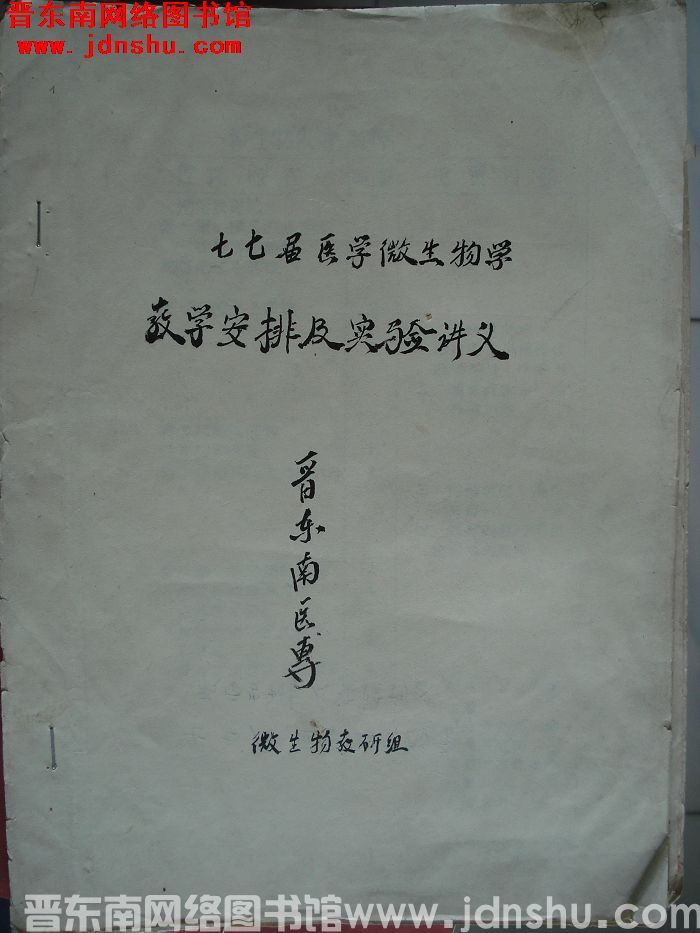 晋东南网络图书馆
www.jdnshu.com
七七届医学微生物学
教学安排及实验讲义
晋东南医专
微生物教研组
晋东南网络图书馆www.jdnshu.com